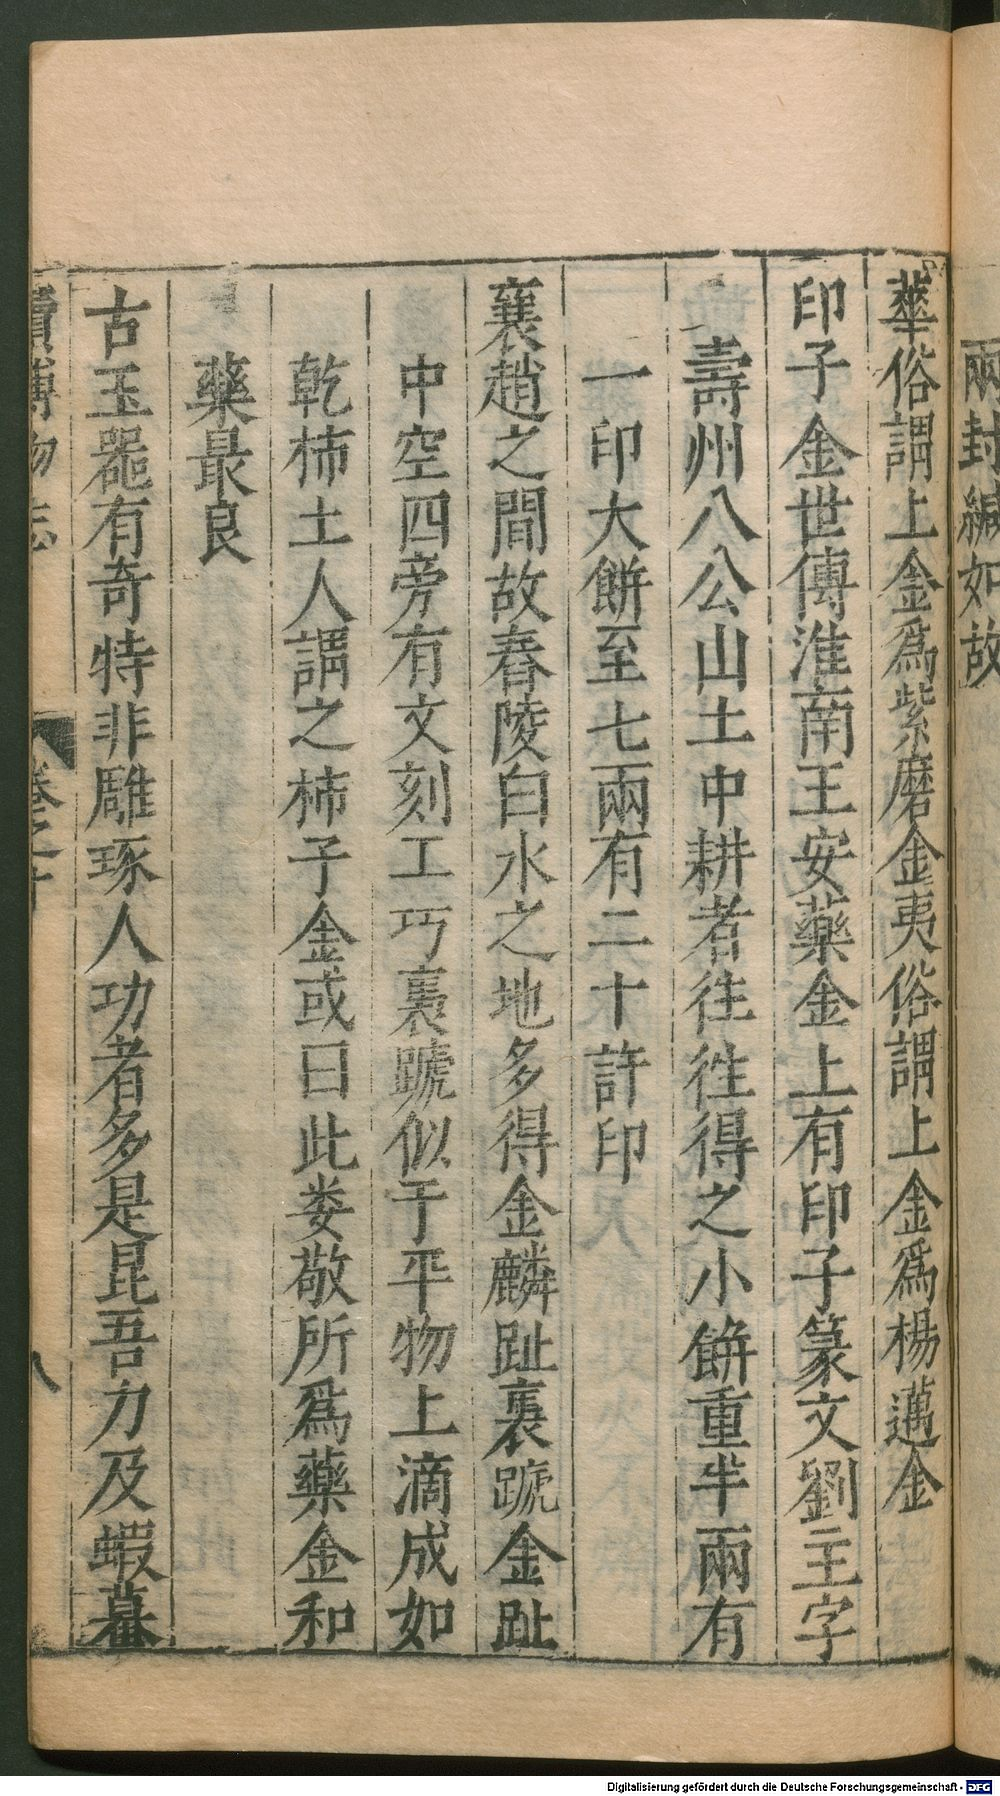 兩封緘如故
華俗謂上金爲紫磨金夷俗謂上金爲楊邁金
印子金世傳淮南王安藥金上有印子篆文劉主字
壽州八公山土中耕者往往得之小餅重半兩有
一印大餅至七兩有二十許印
襄趙之間故舂陵白水之地多得金麟趾褭蹏金趾
中空四旁有文刻工巧褭蹏似于平物上滴成如
乾柿土人謂之柿子金或曰此婁敬所爲藥金和
藥最良
古玉噐有奇特非雕琢人功者多是昆吾刀及蝦蟇
續博物志
卷之十
八
Digitalisierung gefördert durch die Deutsche Forschungsgemeinschaft - DFG